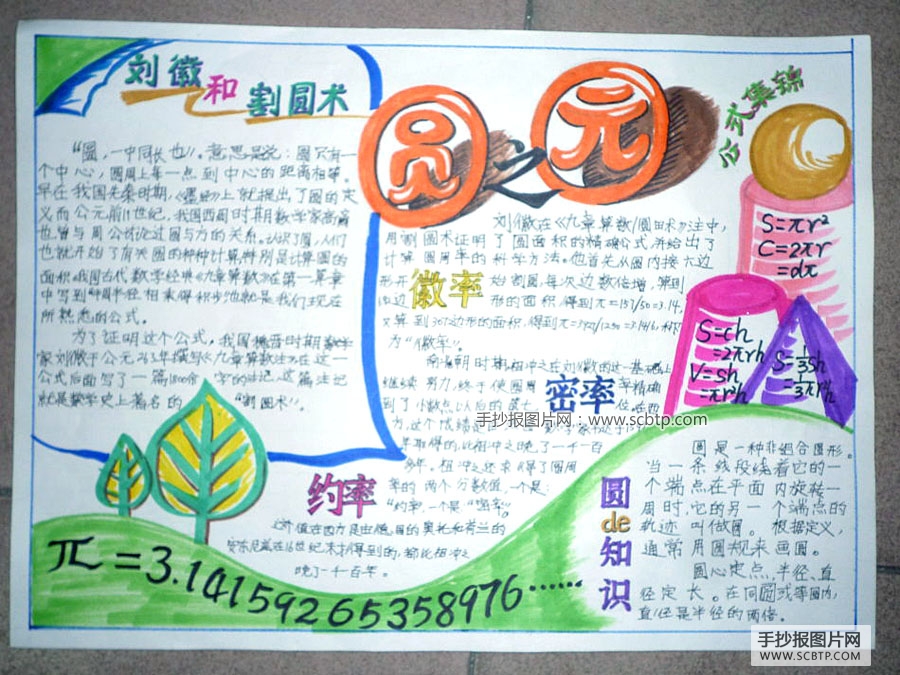 刘徽
和
割圆术
圆之元
公式集锦
"圆,一中同长也"。意思是说:圆只有一
个中心,圆周上每一点到中心的距离相等。
早在我国先秦时期,《墨经》上就提出了圆的定
义而公元前11世纪,我国西周时期数学家商高
也曾与周公讨论过圆与方的关系。认识了圆,人们
也就开始了有关圆的种种计算特别是计算圆的
面积。我国古代数学经典《九章算术》在第一章
中写到"半周半径相乘得积步"也就是我们现在
所熟悉的公式。
为了证明这个公式,我国魏晋时期数学
家刘徽于公元263年撰写《九章算术注》在这一
公式后面写了一篇1800余字的注记,这篇注记
就是数学史上著名的"割圆术"。
刘徽在《九章算数/圆田术》注中,
用割圆术证明了圆面积的精确公式,并给出了
计算圆周率的科学方法。他首先从圆内接六边
形开始割圆,每次边数倍增,算到
边形的面积,得到π=157/50=3.14,
又算到3072边形的面积,得到π=3927/1250=3.1416,
为"徽率"。
徽率
南北朝时期祖冲之在刘徽的这一基础上
继续努力,终于使圆周率精确
到了小数点以后的第七位。在西
方,这个成绩是
年取得的,比祖冲之晚了一千一百
多年。祖冲之还求得了圆周
率的两个分数值,一个是:
"约率",一个是"密率"
密率
约率
上个值在西方是由德国的奥托和荷兰的
安东尼兹在16世纪末才得到的,都比祖冲之
晚了一千百年。
S=πr²
C=2πr
=dπ
S=ch
=2πrh
V=sh
=πr²h
S=⅓sh
=⅓πr²h
手抄报图片网:www.scbtp.com
圆de知识
圆是一种非闭合图形。
当一条线段绕着它的一
个端点在平面内旋转一
周时,它的另一个端点的
轨迹叫做圆。根据定义,
通常用圆规来画圆。
圆心定点,半径、直
径定长。在同圆或等圆内,
直径是半径的两倍。
π=3.14159265358976……
手抄报图片网
WWW.SCBTP.COM